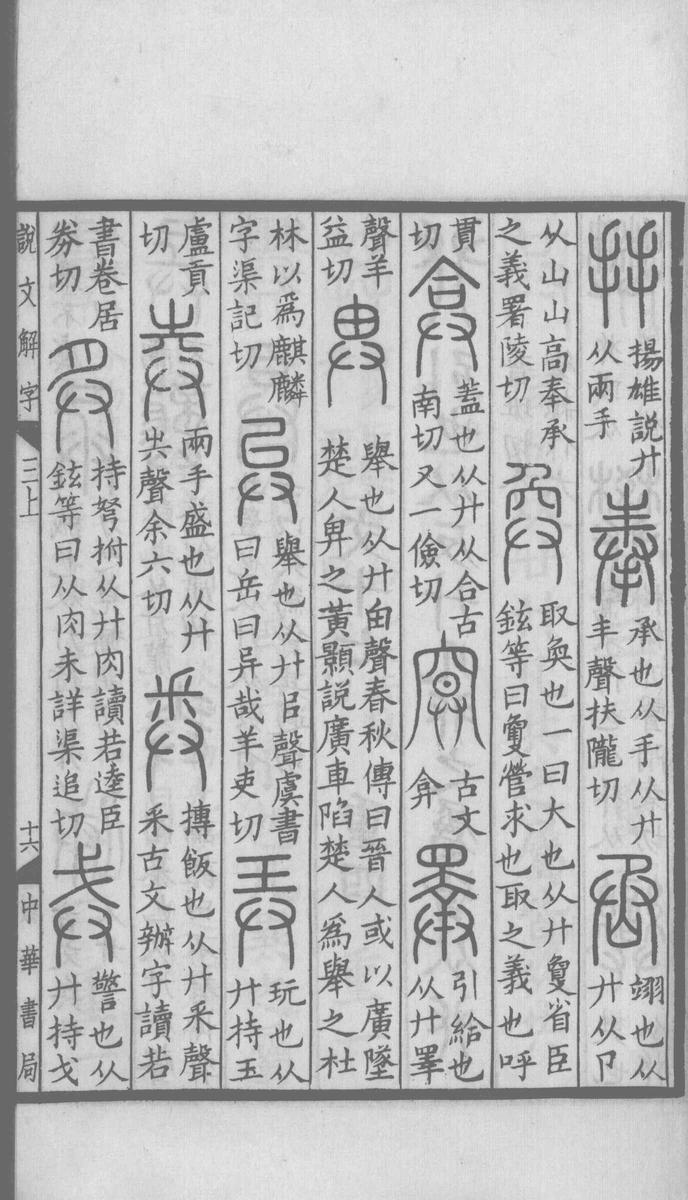 揚雄說廾从兩手奉承也从手从廾丰聲扶隴切丞翊也从廾从卩
从山山高奉承之義署陵切奐取奐也一曰大也从廾敻省臣鉉等曰敻營求也取之義也呼
貫切弇蓋也从廾从合古南切又一儉切古文弇引給也从廾睪
聲羊益切𢌿舉也从廾甶聲春秋傳曰晉人或以廣墜楚人𢌿之黃顥說廣車陷楚人爲舉之杜
林以爲麒麟字渠記切异舉也从廾㠯聲虞書曰岳曰异哉羊吏切弄玩也从廾持玉
盧貢切兩手盛也从廾圥聲余六切摶飯也从廾釆聲釆古文辦字讀若
書卷居券切持弩拊从廾肉讀若逵臣鉉等曰从肉未詳渠追切戒警也从廾持戈
說文解字 三上 十六 中華書局